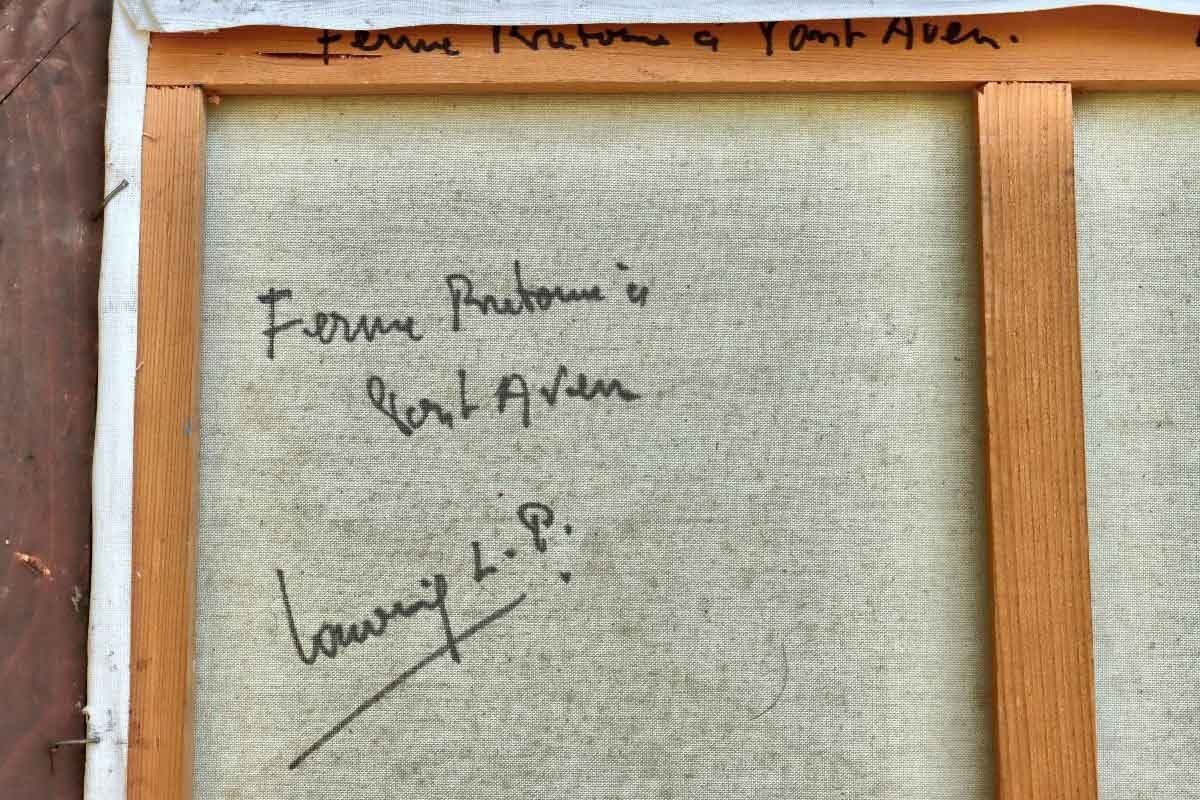 Ferme Bretonne à Pont Aven.
Ferme Bretonne à
Pont Aven
L. P.